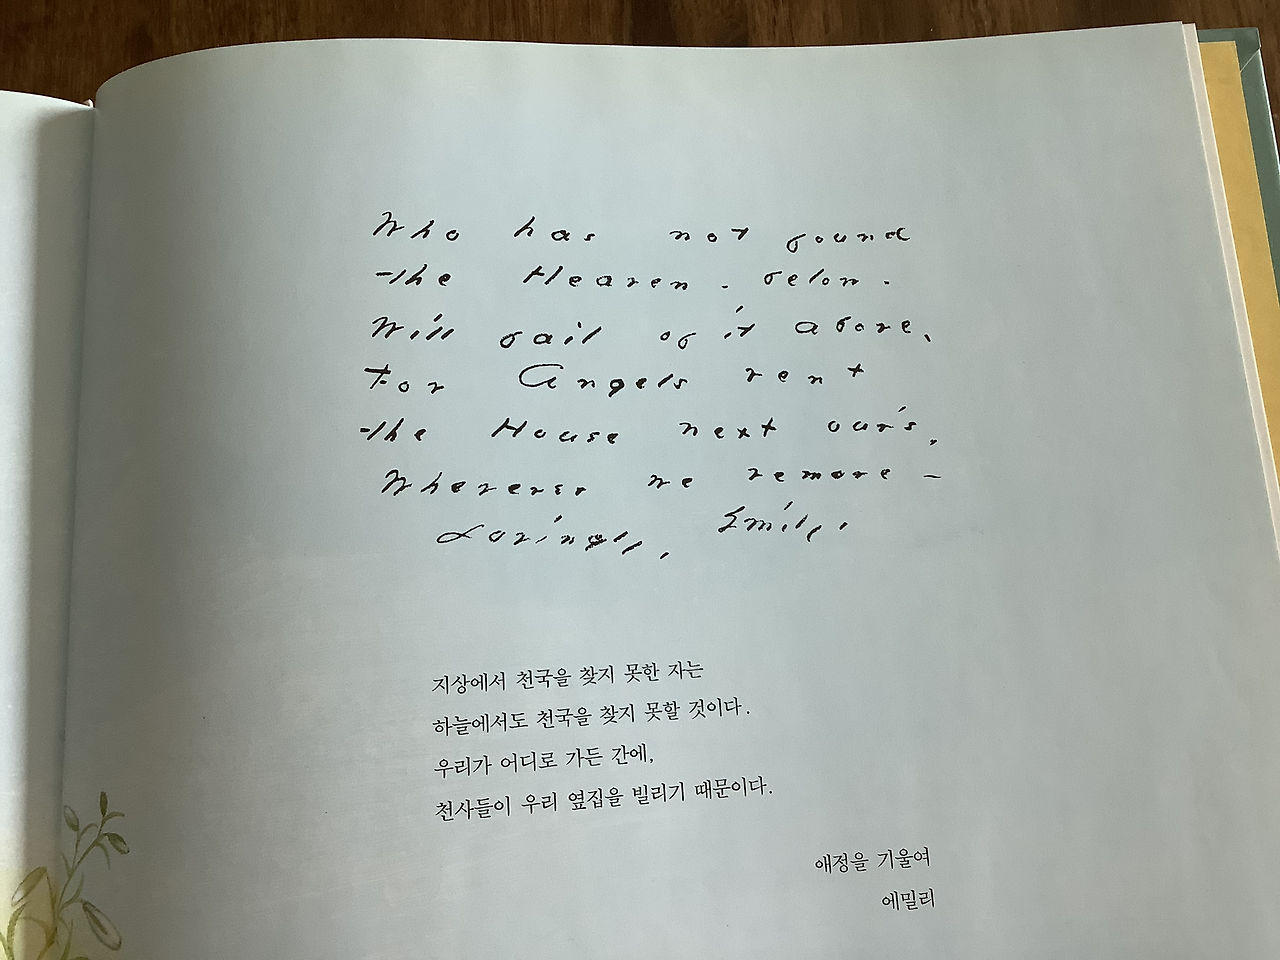 Who has not found
the Heaven - below -
Will fail of it above,
For Angels rent
the House next our's,
Wherever we remove -
Lovingly, Emily.
지상에서 천국을 찾지 못한 자는
하늘에서도 천국을 찾지 못할 것이다.
우리가 어디로 가든 간에,
천사들이 우리 옆집을 빌리기 때문이다.
애정을 기울여
에밀리